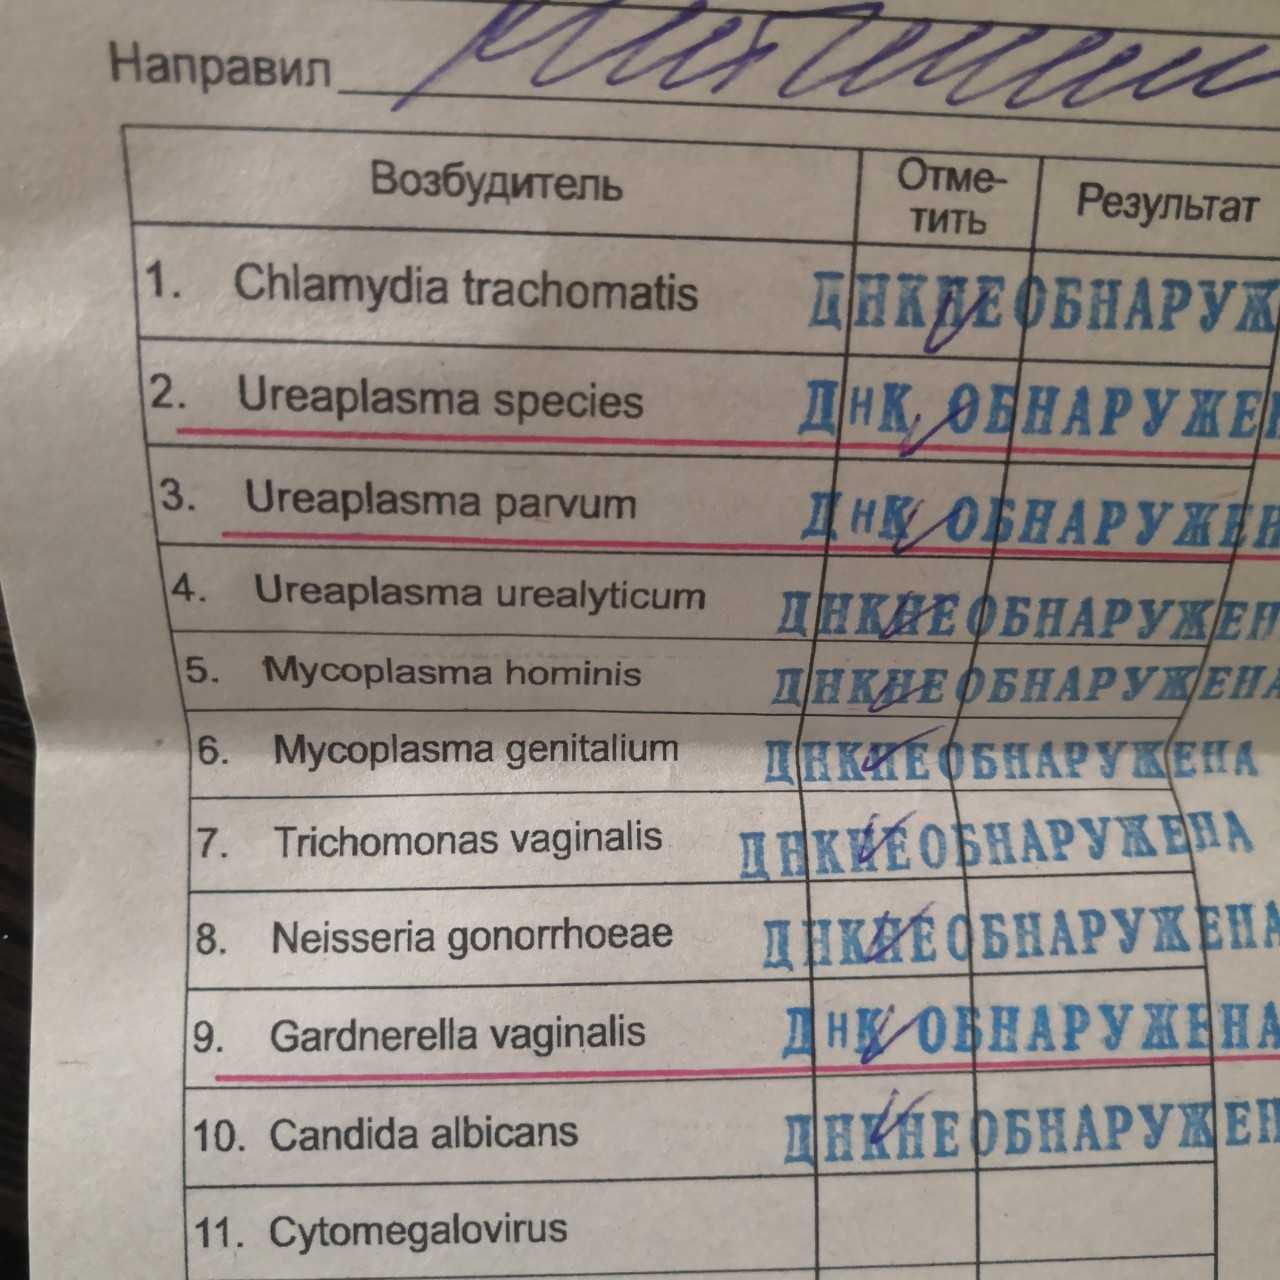 Направил
Возбудитель Отме-тить Результат
1. Chlamydia trachomatis ДНК НЕ ОБНАРУЖ
2. Ureaplasma species ДНК ОБНАРУЖЕН
3. Ureaplasma parvum ДНК ОБНАРУЖЕН
4. Ureaplasma urealyticum ДНК НЕ ОБНАРУЖЕН
5. Mycoplasma hominis ДНК НЕ ОБНАРУЖЕНА
6. Mycoplasma genitalium ДНК НЕ ОБНАРУЖЕНА
7. Trichomonas vaginalis ДНК НЕ ОБНАРУЖЕНА
8. Neisseria gonorrhoeae ДНК НЕ ОБНАРУЖЕНА
9. Gardnerella vaginalis ДНК ОБНАРУЖЕНА
10. Candida albicans ДНК НЕ ОБНАРУЖЕН
11. Cytomegalovirus